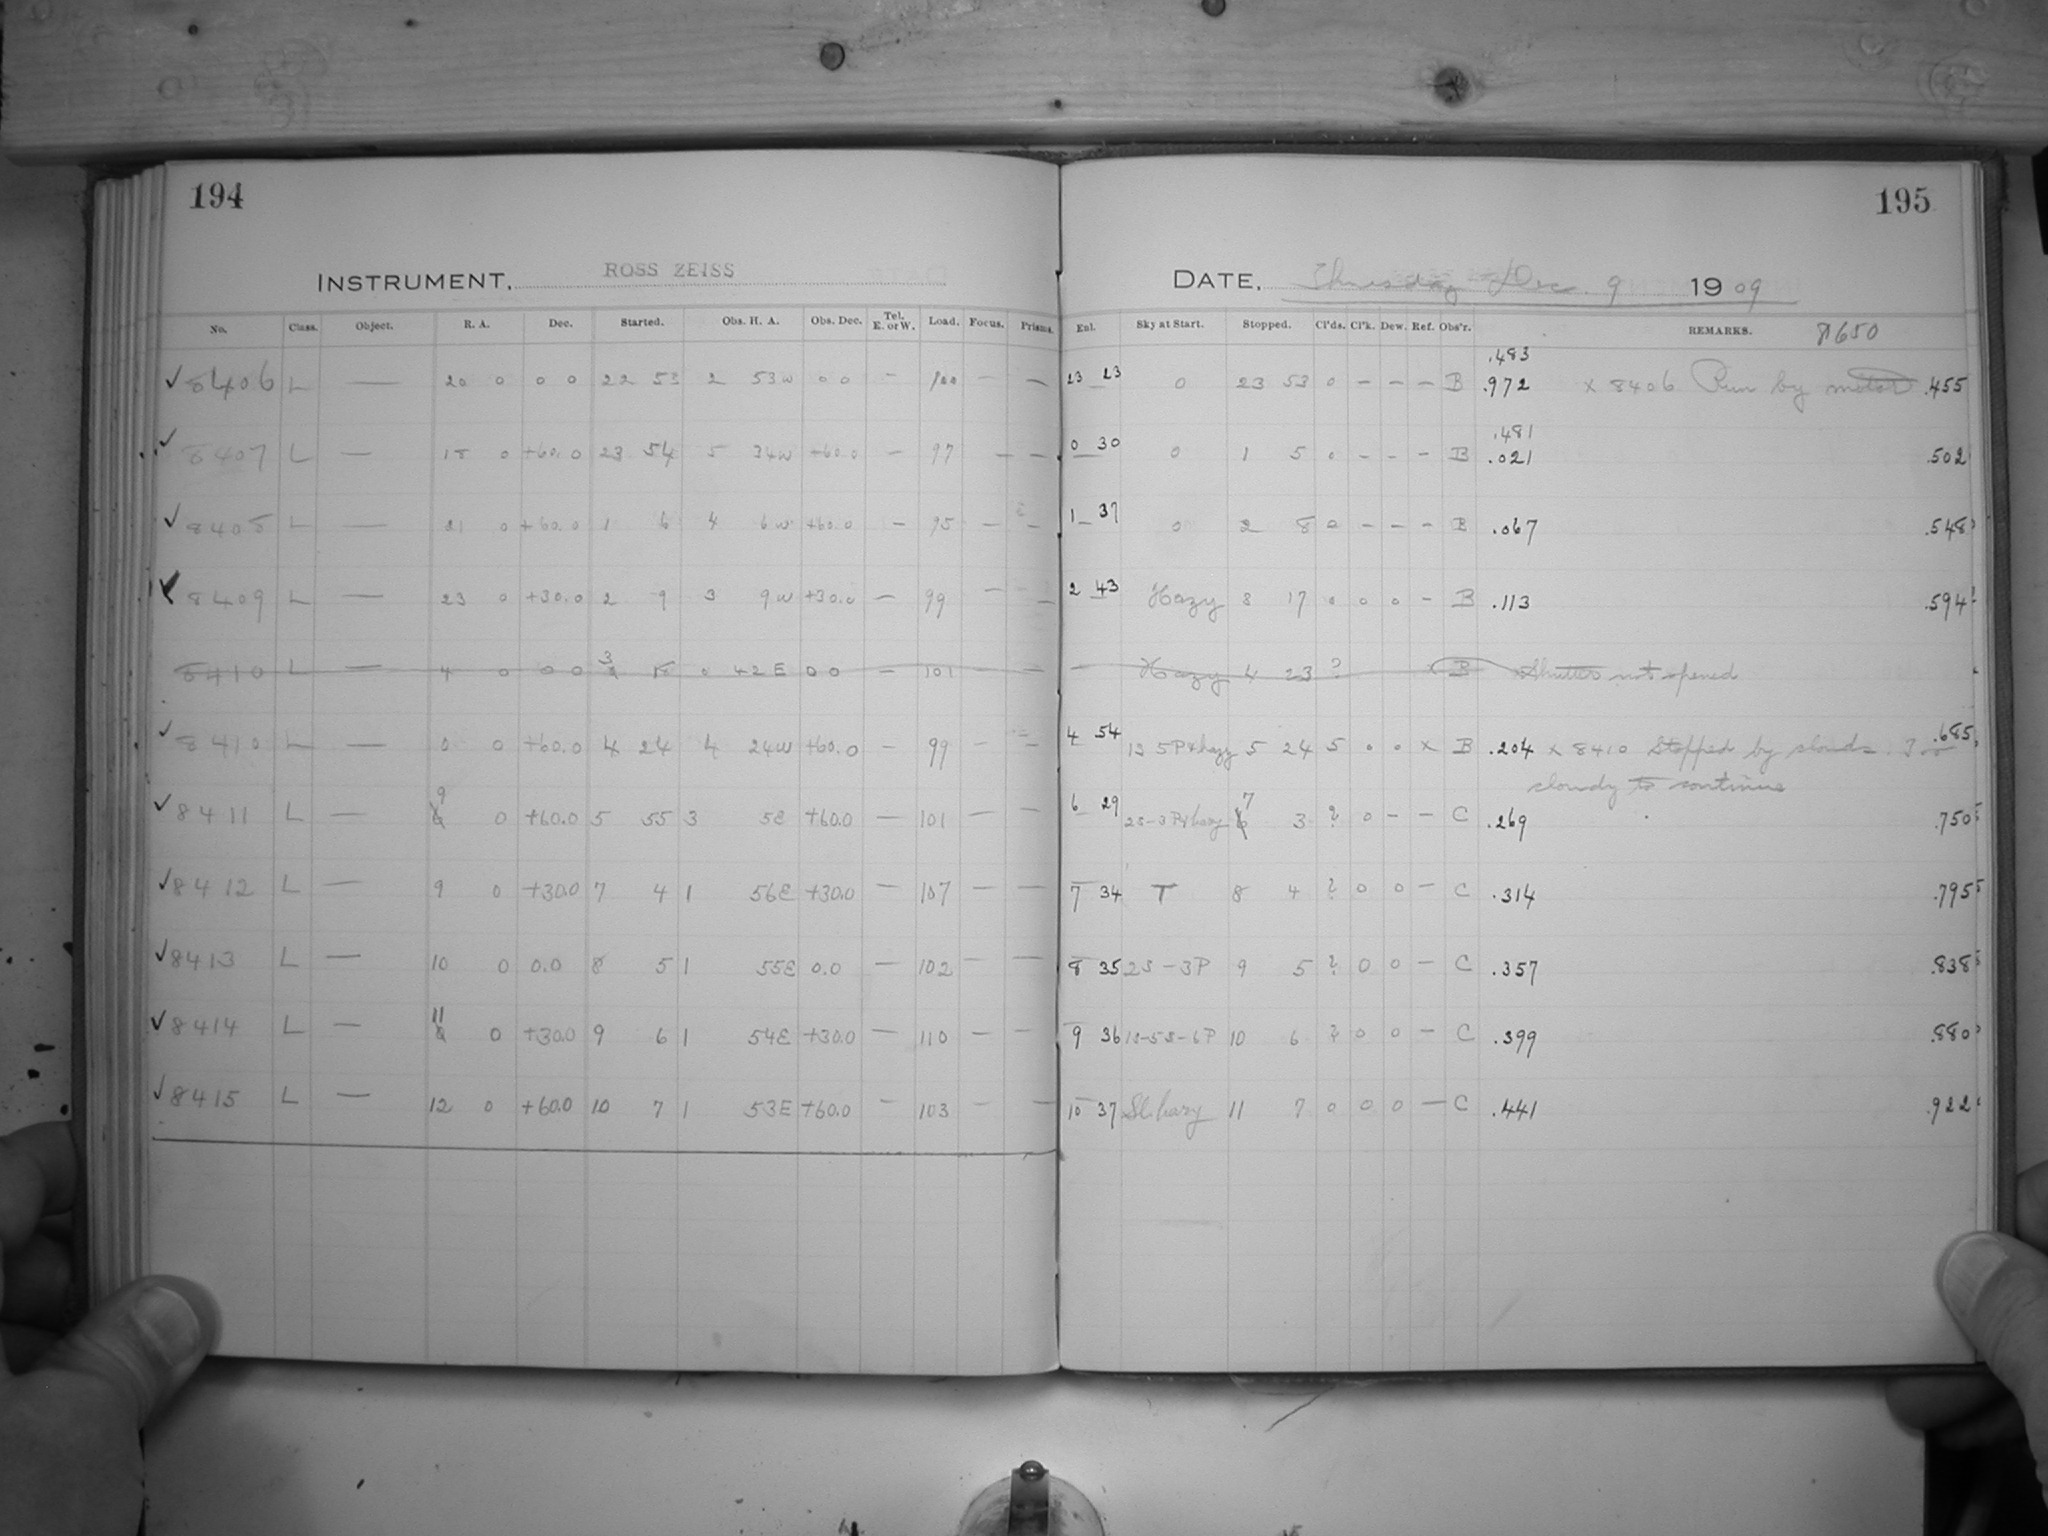 194
INSTRUMENT, ROSS ZEISS
No. Class. Object. R. A. Dec. Started. Obs. H. A. Obs. Dec. Tel. E. or W. Load. Focus. Prisms.
✓ 8406 L — 20 0 0 0 22 53 2 53w 0 0 — 100 — —
✓ 8407 L — 18 0 +60.0 23 54 5 34w +60.0 — 97 — —
✓ 8408 L — 21 0 +60.0 1 6 4 6w +60.0 — 95 — —
✓ 8409 L — 23 0 +30.0 2 9 3 9w +30.0 — 99 — —
8410 L — 4 0 0 0 3 0 42E 0 0 — 101 — —
✓ 8410 L — 0 0 +60.0 4 24 4 24w +60.0 — 99 — —
✓ 8411 L — 9 0 +60.0 5 55 3 5E +60.0 — 101 — —
✓ 8412 L — 9 0 +30.0 7 4 1 56E +30.0 — 107 — —
✓ 8413 L — 10 0 0.0 8 5 1 55E 0.0 — 102 — —
✓ 8414 L — 11 0 +30.0 9 6 1 54E +30.0 — 110 — —
✓ 8415 L — 12 0 +60.0 10 7 1 53E +60.0 — 103 — —
195
DATE, Thursday Dec. 9 1909
Enl. Sky at Start. Stopped. Cl'ds. Cl'k. Dew. Ref. Obs'r. REMARKS. 8650
.483
23 23 0 23 53 0 — — — B .972 x 8406 Run by motor .455
.481
0 30 0 1 5 0 — — — B .021 .502
1 37 0 2 8 0 — — — B .067 .548
2 43 Hazy 8 17 0 0 0 — B .113 .594
— Hazy 4 23 ? B Shutter not opened
4 54 1S 5P+hazy 5 24 5 0 0 x B .204 x 8410 Stopped by clouds. Too .685
cloudy to continue
6 29 2S-3P+hazy 7 3 ? 0 — — C .269 .750
7 34 T 8 4 ? 0 0 — C .314 .795
8 35 2S-3P 9 5 ? 0 0 — C .357 .838
9 36 1S-5S-6P 10 6 ? 0 0 — C .399 .880
10 37 Sl. hazy 11 7 0 0 0 — C .441 .922